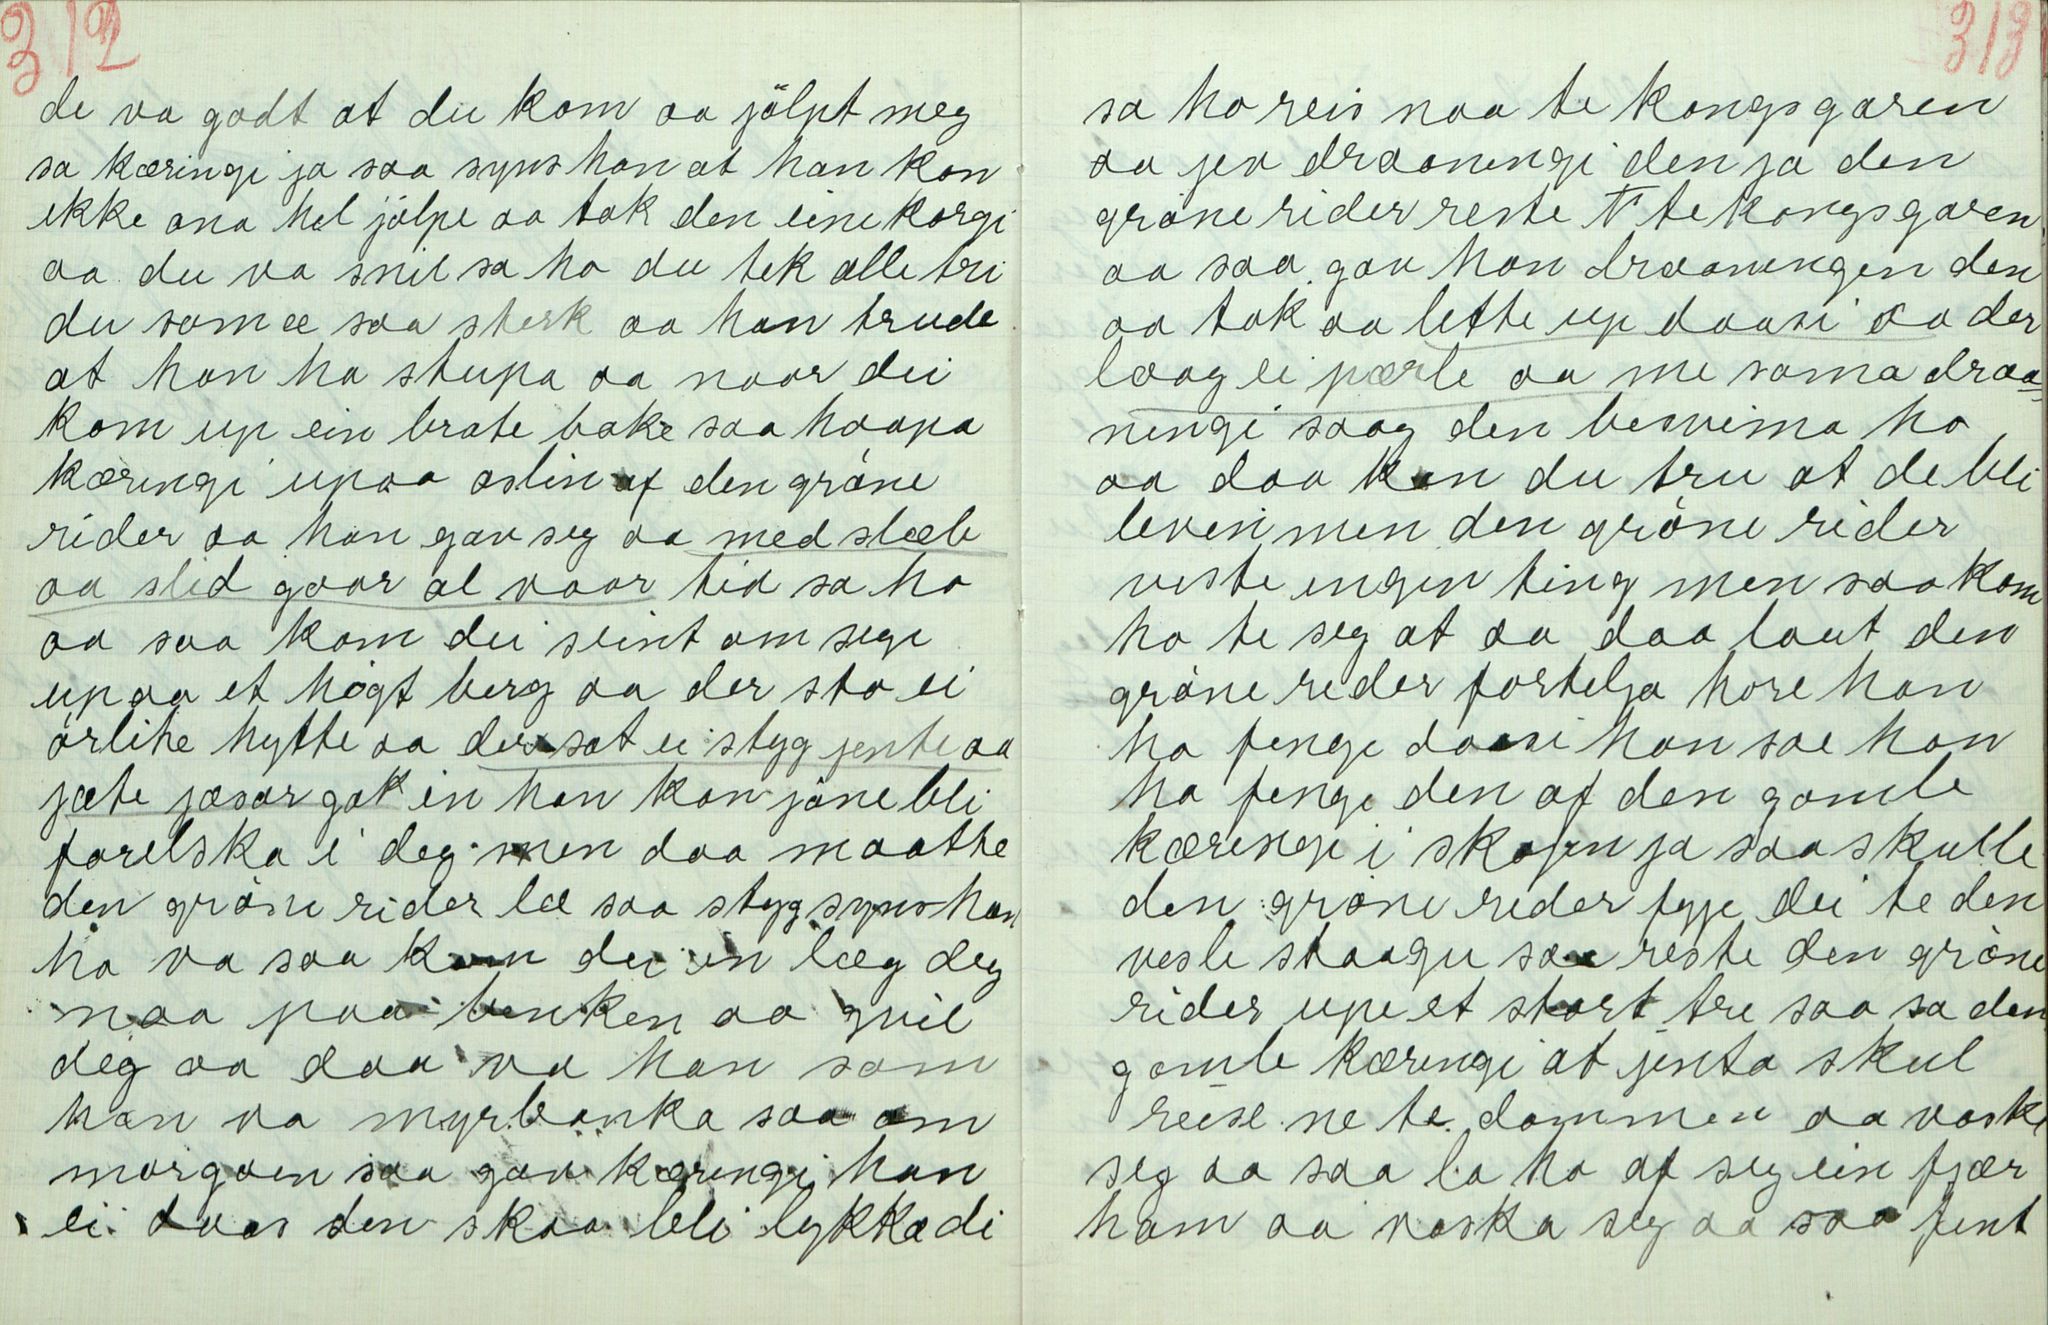 312
de va godt at du kom aa jölpt meg
sa kæringi ja saa syns han at han kan
ekke ana hel jölpe aa tok den eine korgi
aa du va snil sa ho du tek alle tri
du som ee saa sterk aa han trude
at han ha stupa aa naar dei
kom up ein brate bake saa haapa
kæringi upaa aslin af den gröne
rider aa han gav seg aa med slæb
aa slid gaar al vaar tid sa ho
aa saa kom dei seint om sege
upaa et högt berg aa der sto ei
örlite hytte aa der sat ei styg jente aa
jæte jæsar gak in han kan jöne bli
forelska i deg men daa maatte
den gröne rider læ saa styg syns han
ho va saa kom du in læg deg
naa paa benken aa qvil
deg aa daa va han som
han va myrbanka saa om
morgaen saa gav kæringi han
ei daas den skaa bli lykka di
313
sa ho reis naa te kongsgaren
aa jev draaningi den ja den
gröne rider reste te kongsgaren
aa saa gav han draaningen den
aa tok aa lette up daasi aa der
laag ei pærle aa me sama draa-
ningi saag den besvima ho
aa daa kan du tru at de bli
leven men den gröne rider
veste ingen ting men saa kom
ho te seg at aa daa laut den
gröne rider fortelja hore han
ha fenge daasi han sae han
ha fenge den af den gamle
kæringi i skogen ja saa skulle
den gröne rider fyje dei te den
vesle staagu saa reste den gröne
rider upi et stort tre saa sa den
gamle kæringi at jenta skul
reise ne te dammen aa vaske
seg aa saa la ho af seg ein fjær
ham aa vaska seg aa saa fent